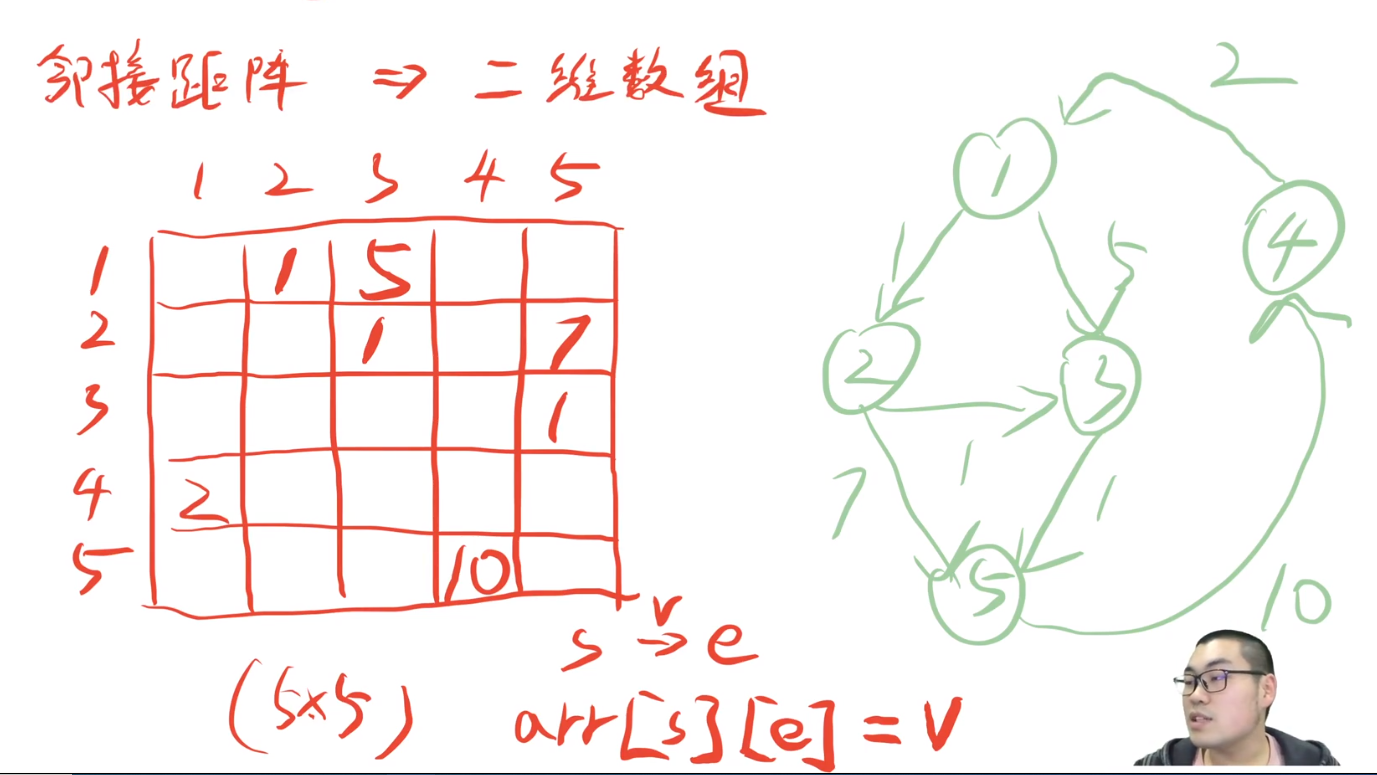 邻接距阵 ⇒ 二维数组
1 2 3 4 5
1 1 5
2 1 7
3 1
4 2
5 10
s →v e
(5×5)
arr[s][e] = v
2
1
4
1 5
2 3
7 1 1
5
10